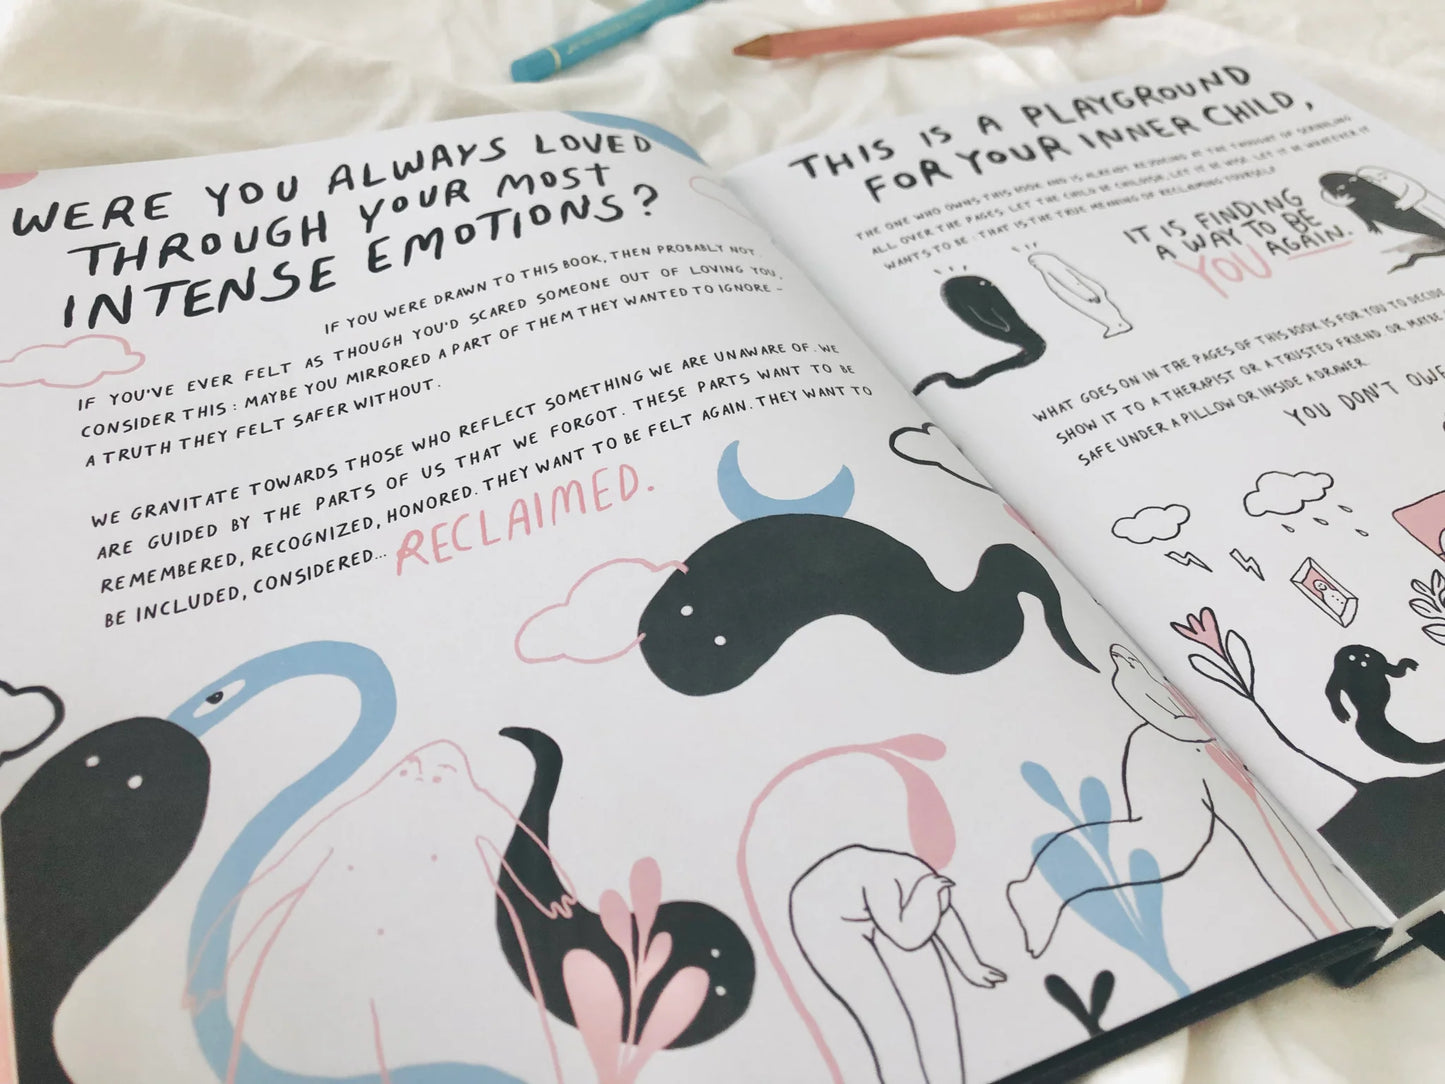 WERE YOU ALWAYS LOVED
THROUGH YOUR MOST
INTENSE EMOTIONS?
IF YOU WERE DRAWN TO THIS BOOK, THEN PROBABLY NOT.
IF YOU'VE EVER FELT AS THOUGH YOU'D SCARED SOMEONE OUT OF LOVING YOU,
CONSIDER THIS: MAYBE YOU MIRRORED A PART OF THEM THEY WANTED TO IGNORE -
A TRUTH THEY FELT SAFER WITHOUT.
WE GRAVITATE TOWARDS THOSE WHO REFLECT SOMETHING WE ARE UNAWARE OF. WE
ARE GUIDED BY THE PARTS OF US THAT WE FORGOT. THESE PARTS WANT TO BE
REMEMBERED, RECOGNIZED, HONORED. THEY WANT TO BE FELT AGAIN. THEY WANT TO
BE INCLUDED, CONSIDERED... RECLAIMED.
THIS IS A PLAYGROUND
FOR YOUR INNER CHILD,
THE ONE WHO OWNS THIS BOOK AND IS ALREADY REJOICING AT THE THOUGHT OF SCRIBBLING
ALL OVER THE PAGES. LET THE CHILD BE CHILDISH. LET IT BE WISE. LET IT BE WHATEVER IT
WANTS TO BE. THAT IS THE TRUE MEANING OF RECLAIMING YOURSELF.
IT IS FINDING
A WAY TO BE
YOU AGAIN.
WHAT GOES ON IN THE PAGES OF THIS BOOK IS FOR YOU TO DECIDE
SHOW IT TO A THERAPIST OR A TRUSTED FRIEND OR MAYBE
SAFE UNDER A PILLOW OR INSIDE A DRAWER.
YOU DON'T OWE